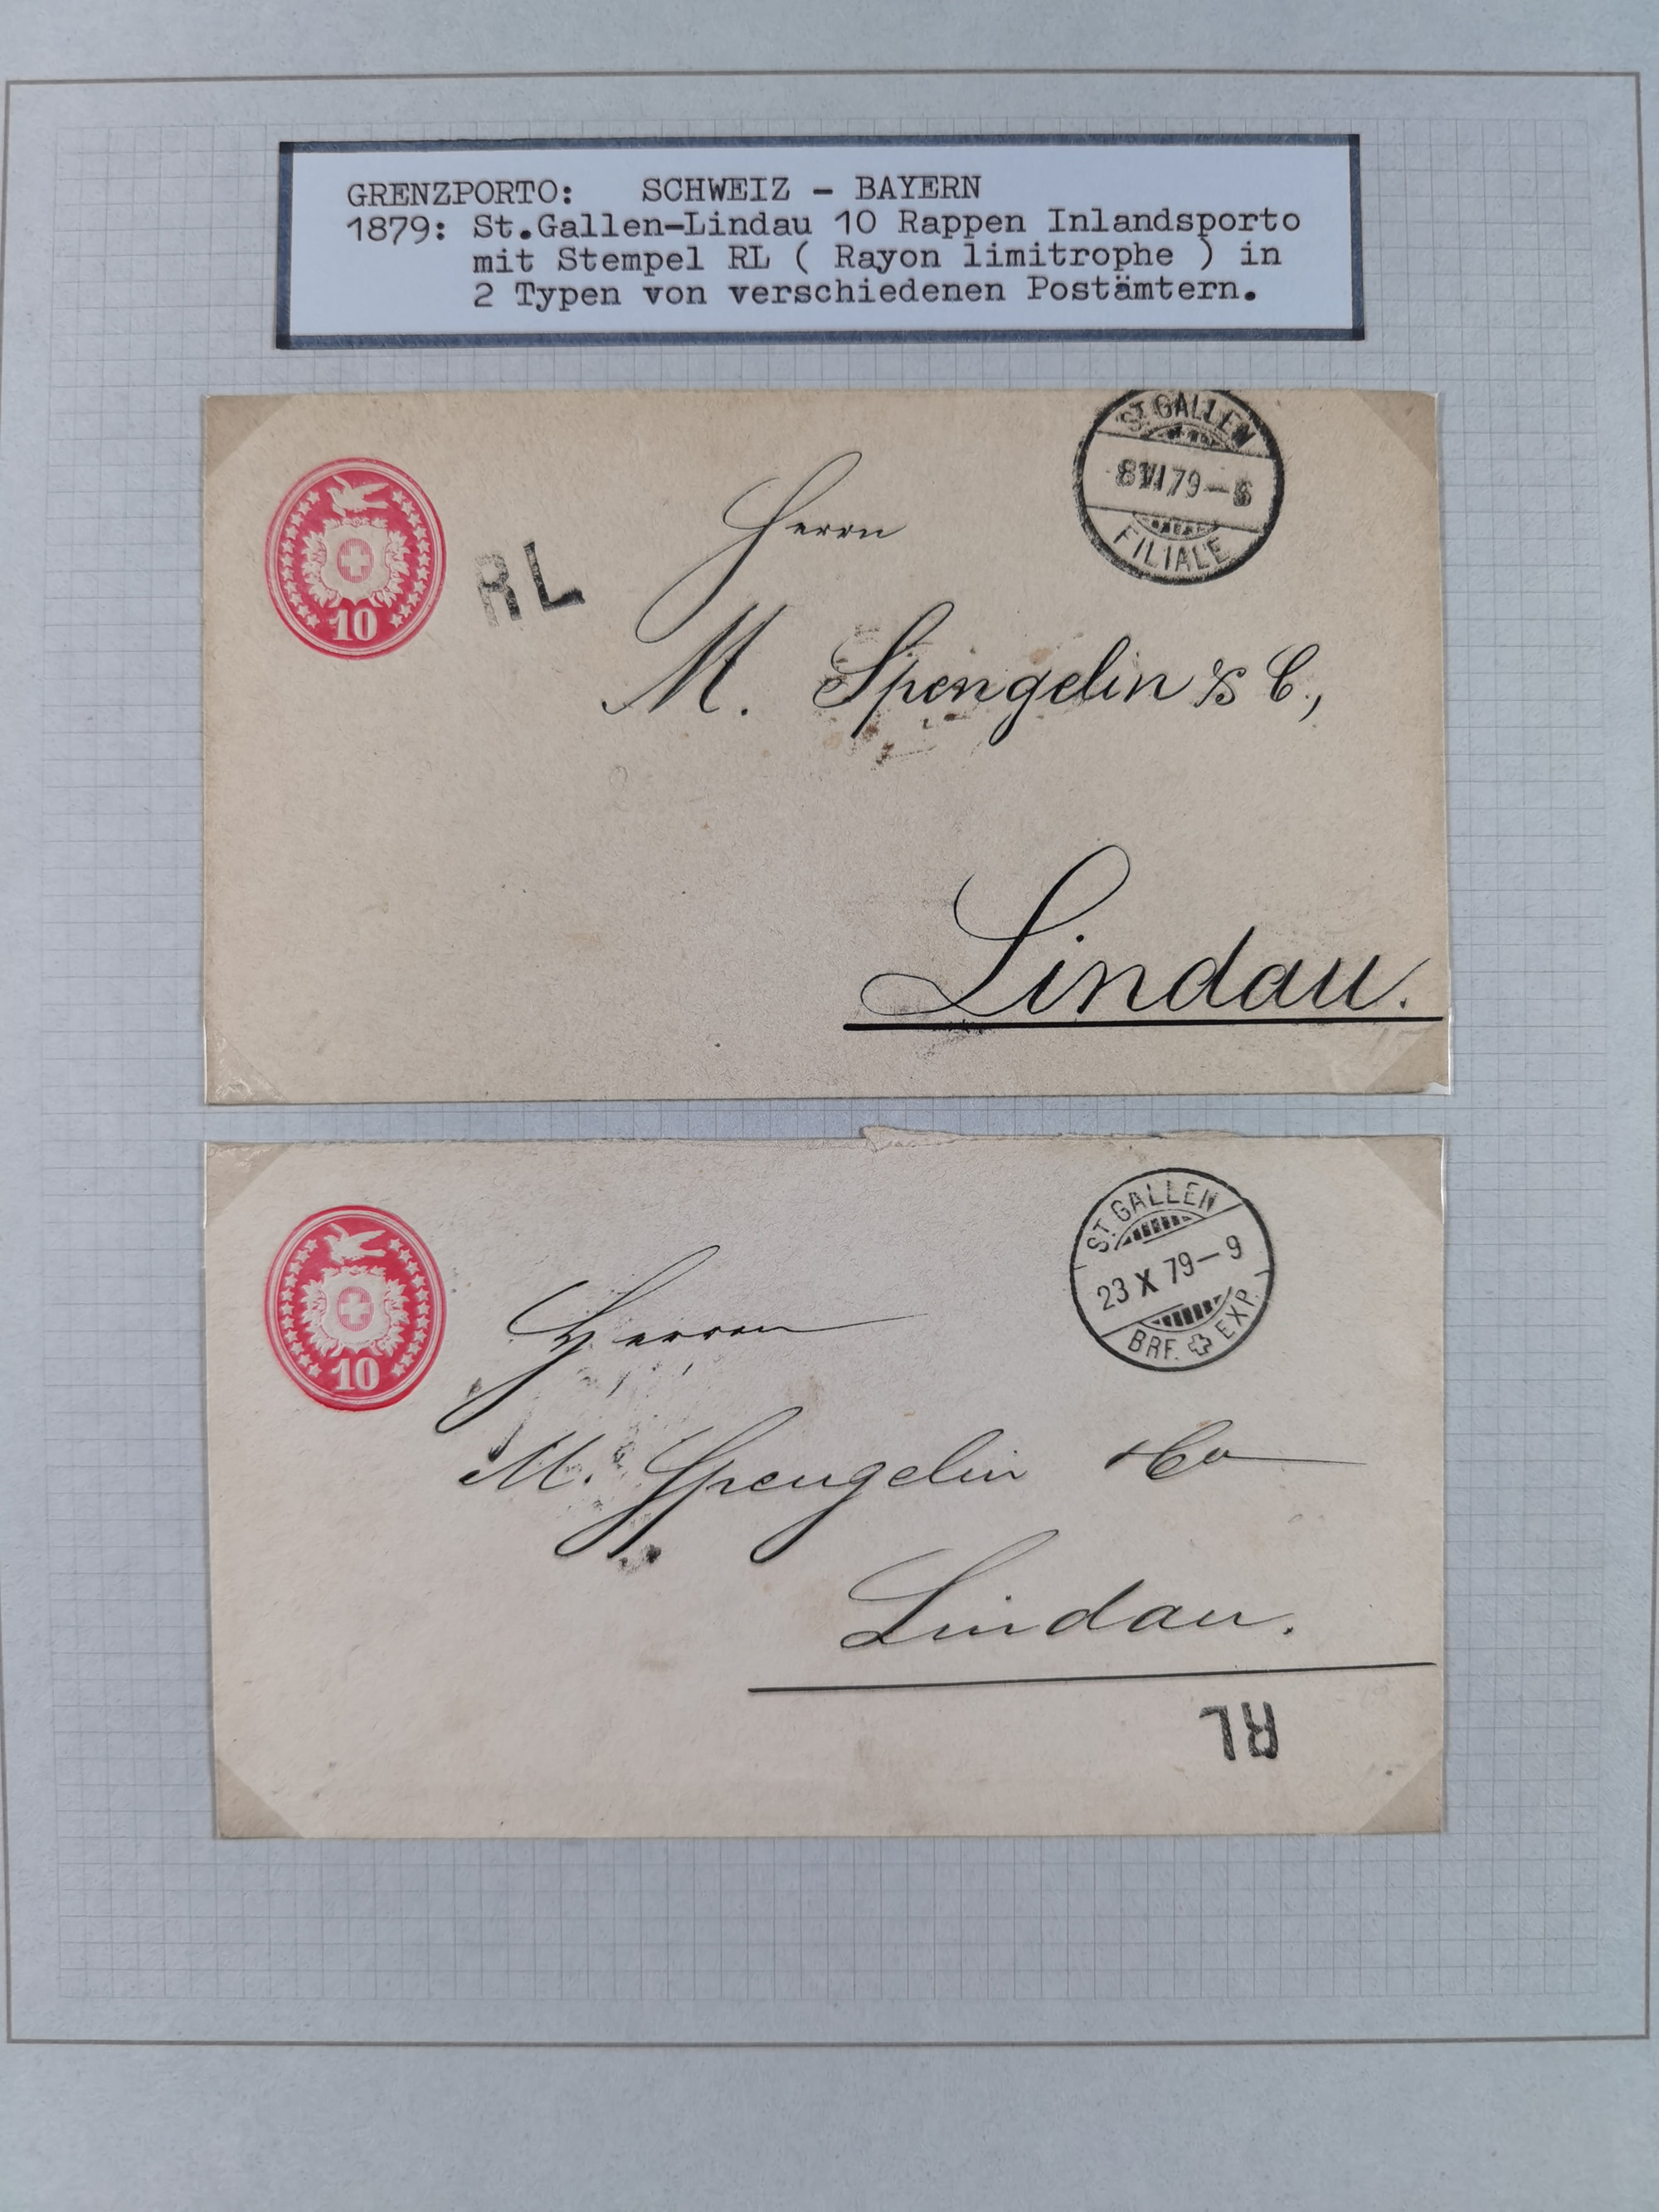 GRENZPORTO: SCHWEIZ - BAYERN
1879: St.Gallen-Lindau 10 Rappen Inlandsporto
mit Stempel RL ( Rayon limitrophe ) in
2 Typen von verschiedenen Postämtern.
ST. GALLEN
79-
FILIALE
10
RL
Herrn
M. Spengelin & C.,
Lindau.
ST. GALLEN
23 X 79-9
BRF. EXP.
10
Herrn
M. Spengelin & Co
Lindau.
RL